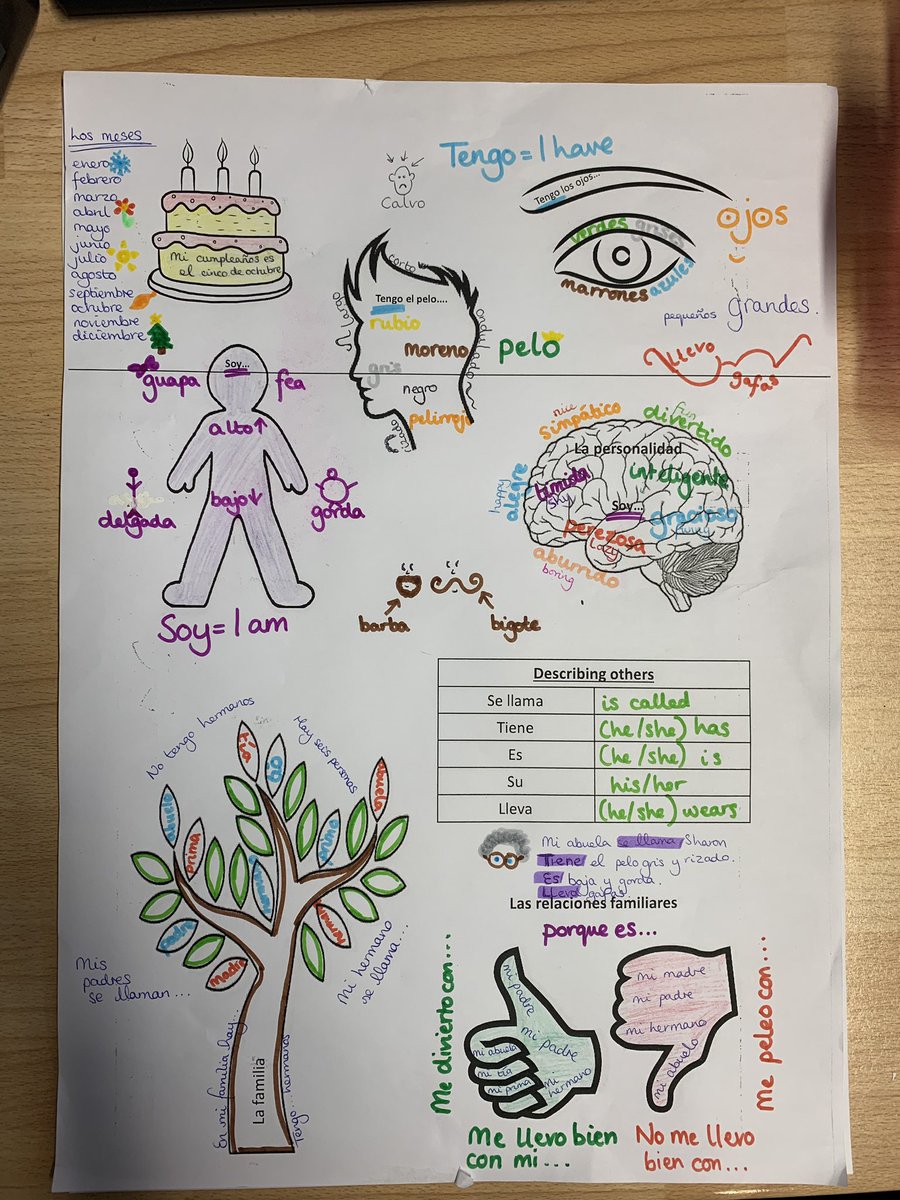 Los meses
enero
febrero
marzo
abril
mayo
junio
julio
agosto
septiembre
octubre
noviembre
diciembre
Mi cumpleaños es
el cinco de octubre
Calvo
Tengo = I have
Tengo los ojos...
verdes grises
marrones azules
ojos
pequeños grandes.
Llevo
gafas
corto
largo
ondulado
rizado
Tengo el pelo....
rubio
moreno
gris
negro
pelirrojo
pelo
Soy...
guapa
fea
alto
bajo
delgada
gorda
Soy = I am
La personalidad
nice
simpático
fun
divertido
happy
alegre
timida
shy
inteligente
Soy...
gracioso
funny
perezosa
lazy
aburrido
boring
barba
bigote
Describing others
Se llama is called
Tiene (he/she) has
Es (he/she) is
Su his/her
Lleva (he/she) wears
Mi abuela se llama Sharon
Tiene el pelo gris y rizado.
Es baja y gorda.
Lleva gafas
No tengo hermanos
Hay seis personas
tío
tía
abuela
abuelo
prima
primo
hermano
hermana
padre
madre
Mis
padres
se llaman...
Mi hermano
se llama...
En mi familia hay...
La familia
Tengo... hermanos
Las relaciones familiares
porque es...
Me divierto con...
mi padre
mi padre
mi abuela
mi tía
mi prima
mi
hermano
Me llevo bien
con mi...
mi madre
mi padre
mi hermano
mi abuelo
Me peleo con...
No me llevo
bien con...